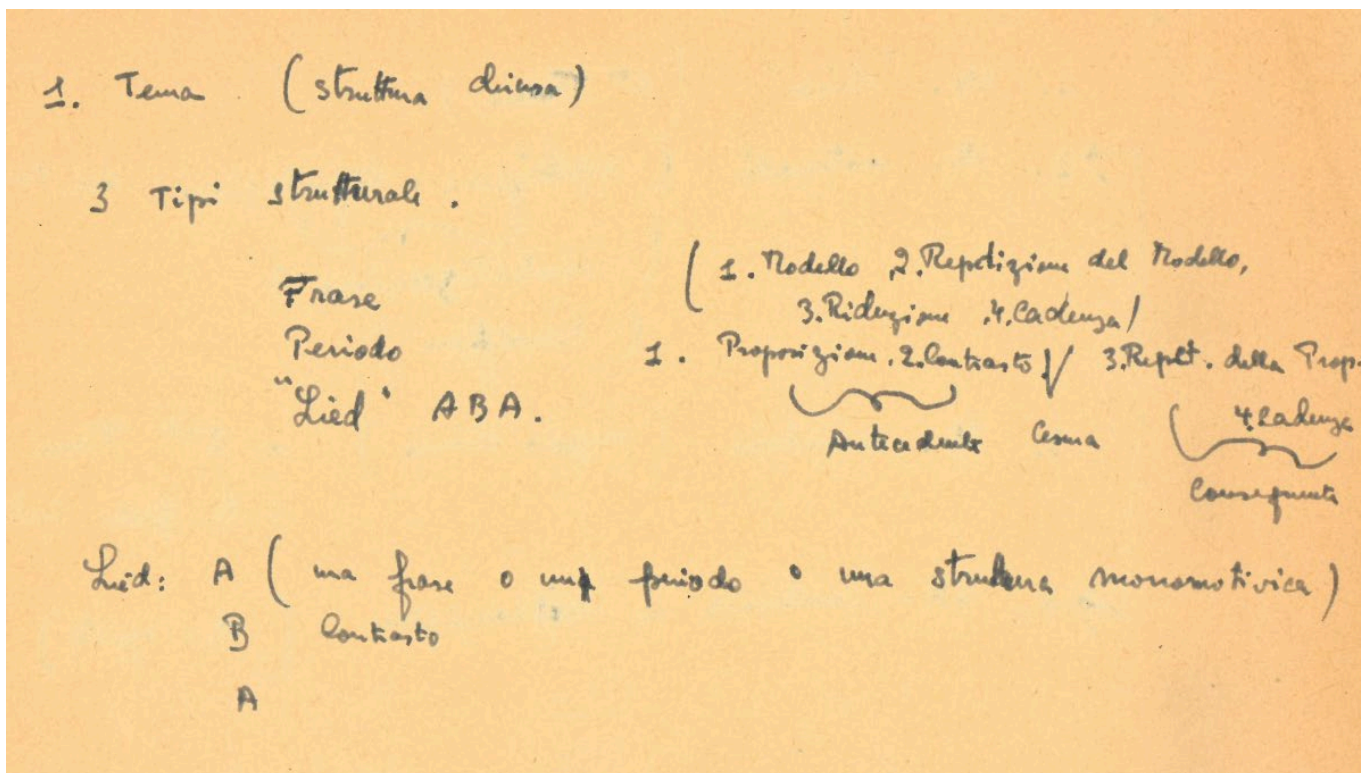 1. Tema (struttura chiusa)
3 Tipi strutturale.
Frase (1. Modello, 2. Repetizione del Modello,
3. Riduzione, 4. Cadenza)
Periodo 1. Proposizione. 2. Contrasto. // 3. Repet. della Prop.
"Lied" ABA. 4. Cadenza
Antecedente Cesura
Conseguente
Lied: A ( una frase o un periodo o una struttura monomotivica)
B Contrasto
A